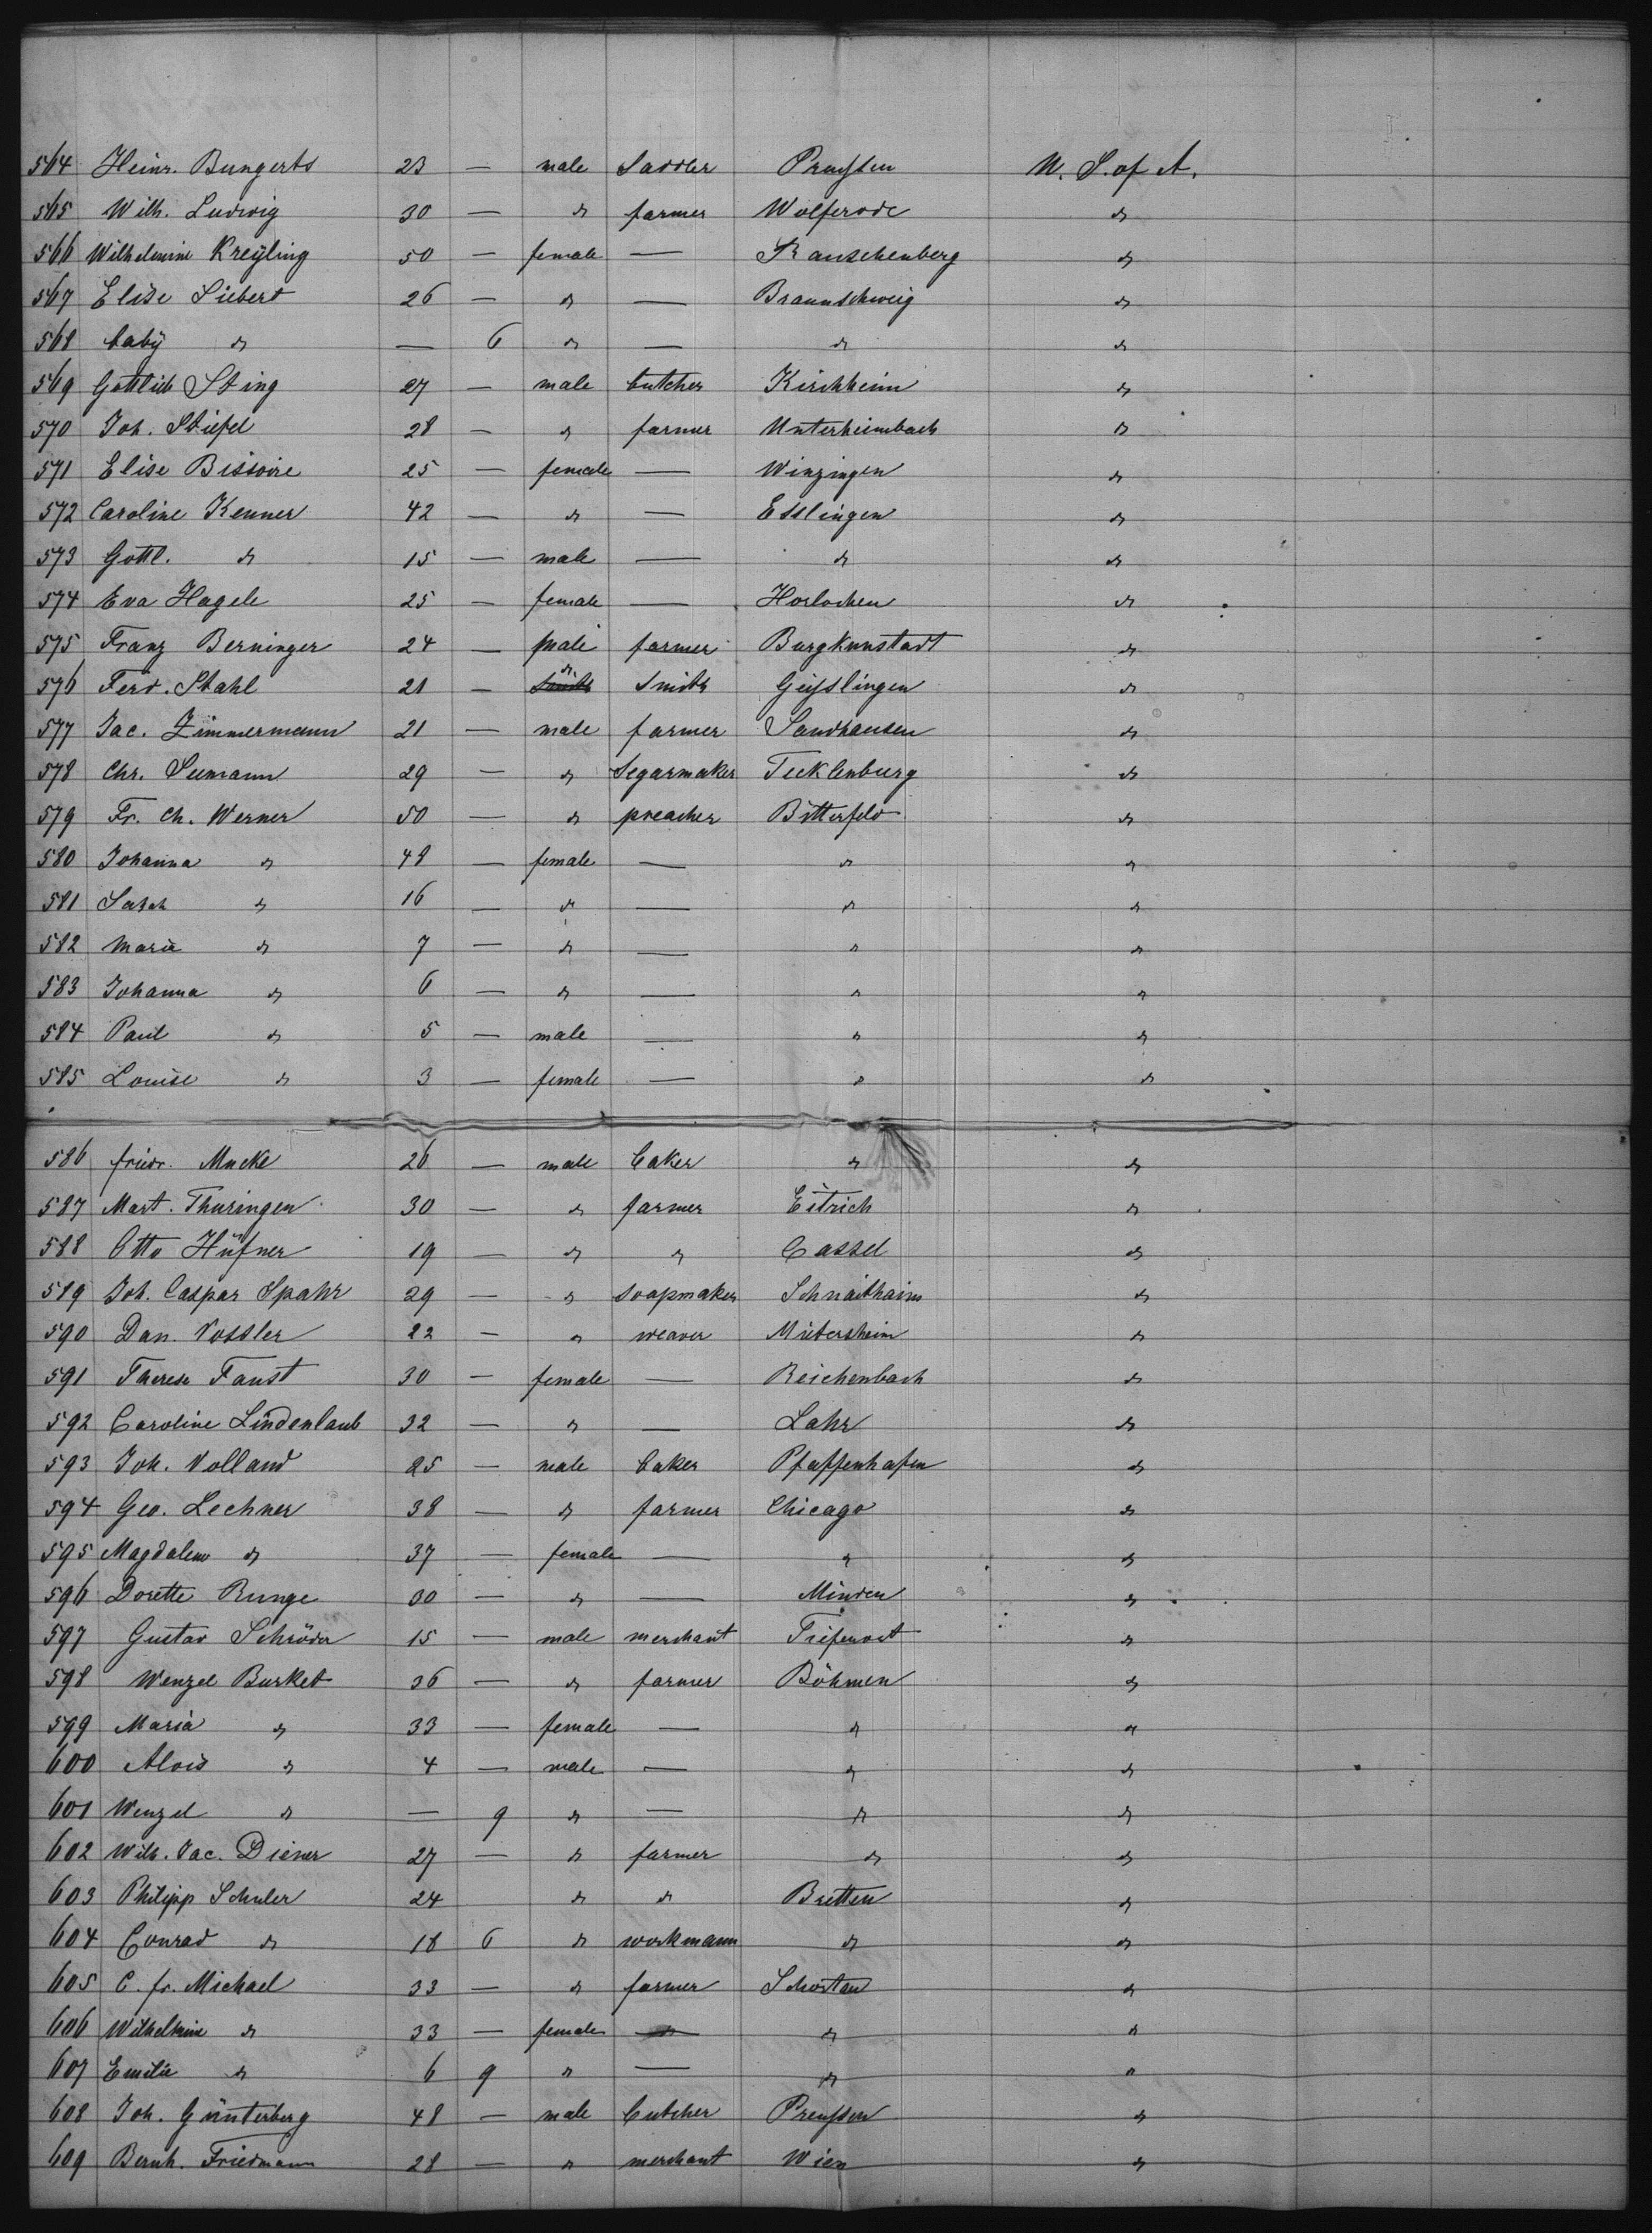 564 Heinr. Bungerts 23 — male Saddler Preußen U. S. of A.
565 Wilh. Ludwig 30 — " farmer Wolferode "
566 Wilhelmine Kreÿling 50 — female — Rauschenberg "
567 Elise Siebert 26 — " — Braunschweig "
568 baby " — 6 " — " "
569 Gottlieb Sting 27 — male butcher Kirchheim "
570 Joh. Stiefel 28 — " farmer Unterheimbach "
571 Elise Bissoire 25 — female — Winzingen "
572 Caroline Kenner 42 — " — Esslingen "
573 Gottl. " 15 — male — " "
574 Eva Hagele 25 — female — Horlachen "
575 Franz Berninger 24 — male farmer Burgkunstadt "
576 Ferd. Stahl 21 — " Smith Geißlingen "
577 Jac. Zimmermann 21 — male farmer Sandhausen "
578 Chr. Seemann 29 — " Segarmaker Tecklenburg "
579 Fr. Ch. Werner 50 — " preacher Bitterfeld "
580 Johanna " 48 — female — " "
581 Sarah " 16 — " — " "
582 Maria " 7 — " — " "
583 Johanna " 6 — " — " "
584 Paul " 5 — male — " "
585 Louise " 3 — female — " "
586 friedr. Mucke 26 — male baker " "
587 Mart. Thuringen 30 — " farmer Eitrich "
588 Otto Hüfner 19 — " " Cassel "
589 Joh. Caspar Spahr 29 — " soapmaker Schnaithaim "
590 Dan. Vossler 22 — " weaver "
591 Therese Faust 30 — female — Reichenbach "
592 Caroline Lindenlaub 32 — " — Lahr "
593 Joh. Volland 25 — male baker Pfaffenhafen "
594 Geo. Lechner 38 — " farmer Chicago "
595 Magdalene " 37 — female — " "
596 Dorette Runge 30 — " — Minden "
597 Gustav Schröder 15 — male merchant Tiefenort "
598 Wenzel Burket 36 — " farmer Böhmen "
599 Maria " 33 — female — " "
600 Alois " 4 — male — " "
601 Wenzel " — 9 " — " "
602 Wilh. Jac. Diener 27 — " farmer " "
603 Philipp Schuler 24 " " Bretten "
604 Conrad " 18 6 " workmann " "
605 C. fr. Michael 33 — " farmer Schortau "
606 Wilhelmine " 33 — female — " "
607 Emilie " 6 9 " — " "
608 Joh. Günterberg 48 — male butcher Preußen "
609 Bernh. Friedmann 28 — " merchant Wien "